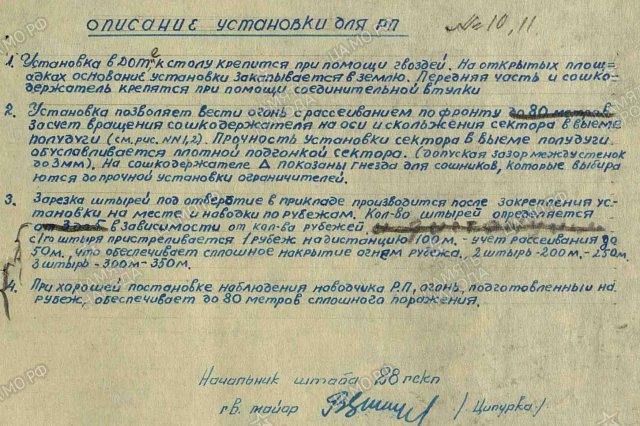 ОПИСАНИЕ УСТАНОВКИ ДЛЯ РП
№ 10, 11
1. Установка в ДОТе к столу крепится при помощи гвоздей. На открытых площ-
адках основание установки закапывается в землю. Передняя часть и сошко-
держатель крепятся при помощи соединительной втулки
2. Установка позволяет вести огонь с рассеиванием по фронту до 80 метров
За счет вращения сошкодержателя на оси и скольжения сектора в выеме
полудуги (см. рис. №№1,2). Прочность установки сектора в выеме полудуги.
обуславливается плотной подгонкой сектора. (допуская зазор между стенок
до 3мм). На сошкодержателе Δ показаны гнезда для сошников, которые выбира-
ются до прочной установки ограничителей.
3. Зарезка штырей под отверстие в прикладе производится после закрепления ус-
тановки на месте и наводки по рубежам. Кол-во штырей определяется
в зависимости от кол-ва рубежей.
с 1го штыря пристреливается 1 рубеж на дистанцию 100м. - учет рассеивания до
50м, что обеспечивает сплошное накрытие огнем рубежа, 2 штырь-200м.-250м.
3 штырь-300м-350м.
4. При хорошей постановке наблюдения наводчика Р.П, огонь, подготовленный на
рубеж, обеспечивает до 80 метров сплошного поражения.
Начальник штаба 28 гскп
гв. майор /Ципурка/
ЦАМО РФ
ПАМЯТЬ